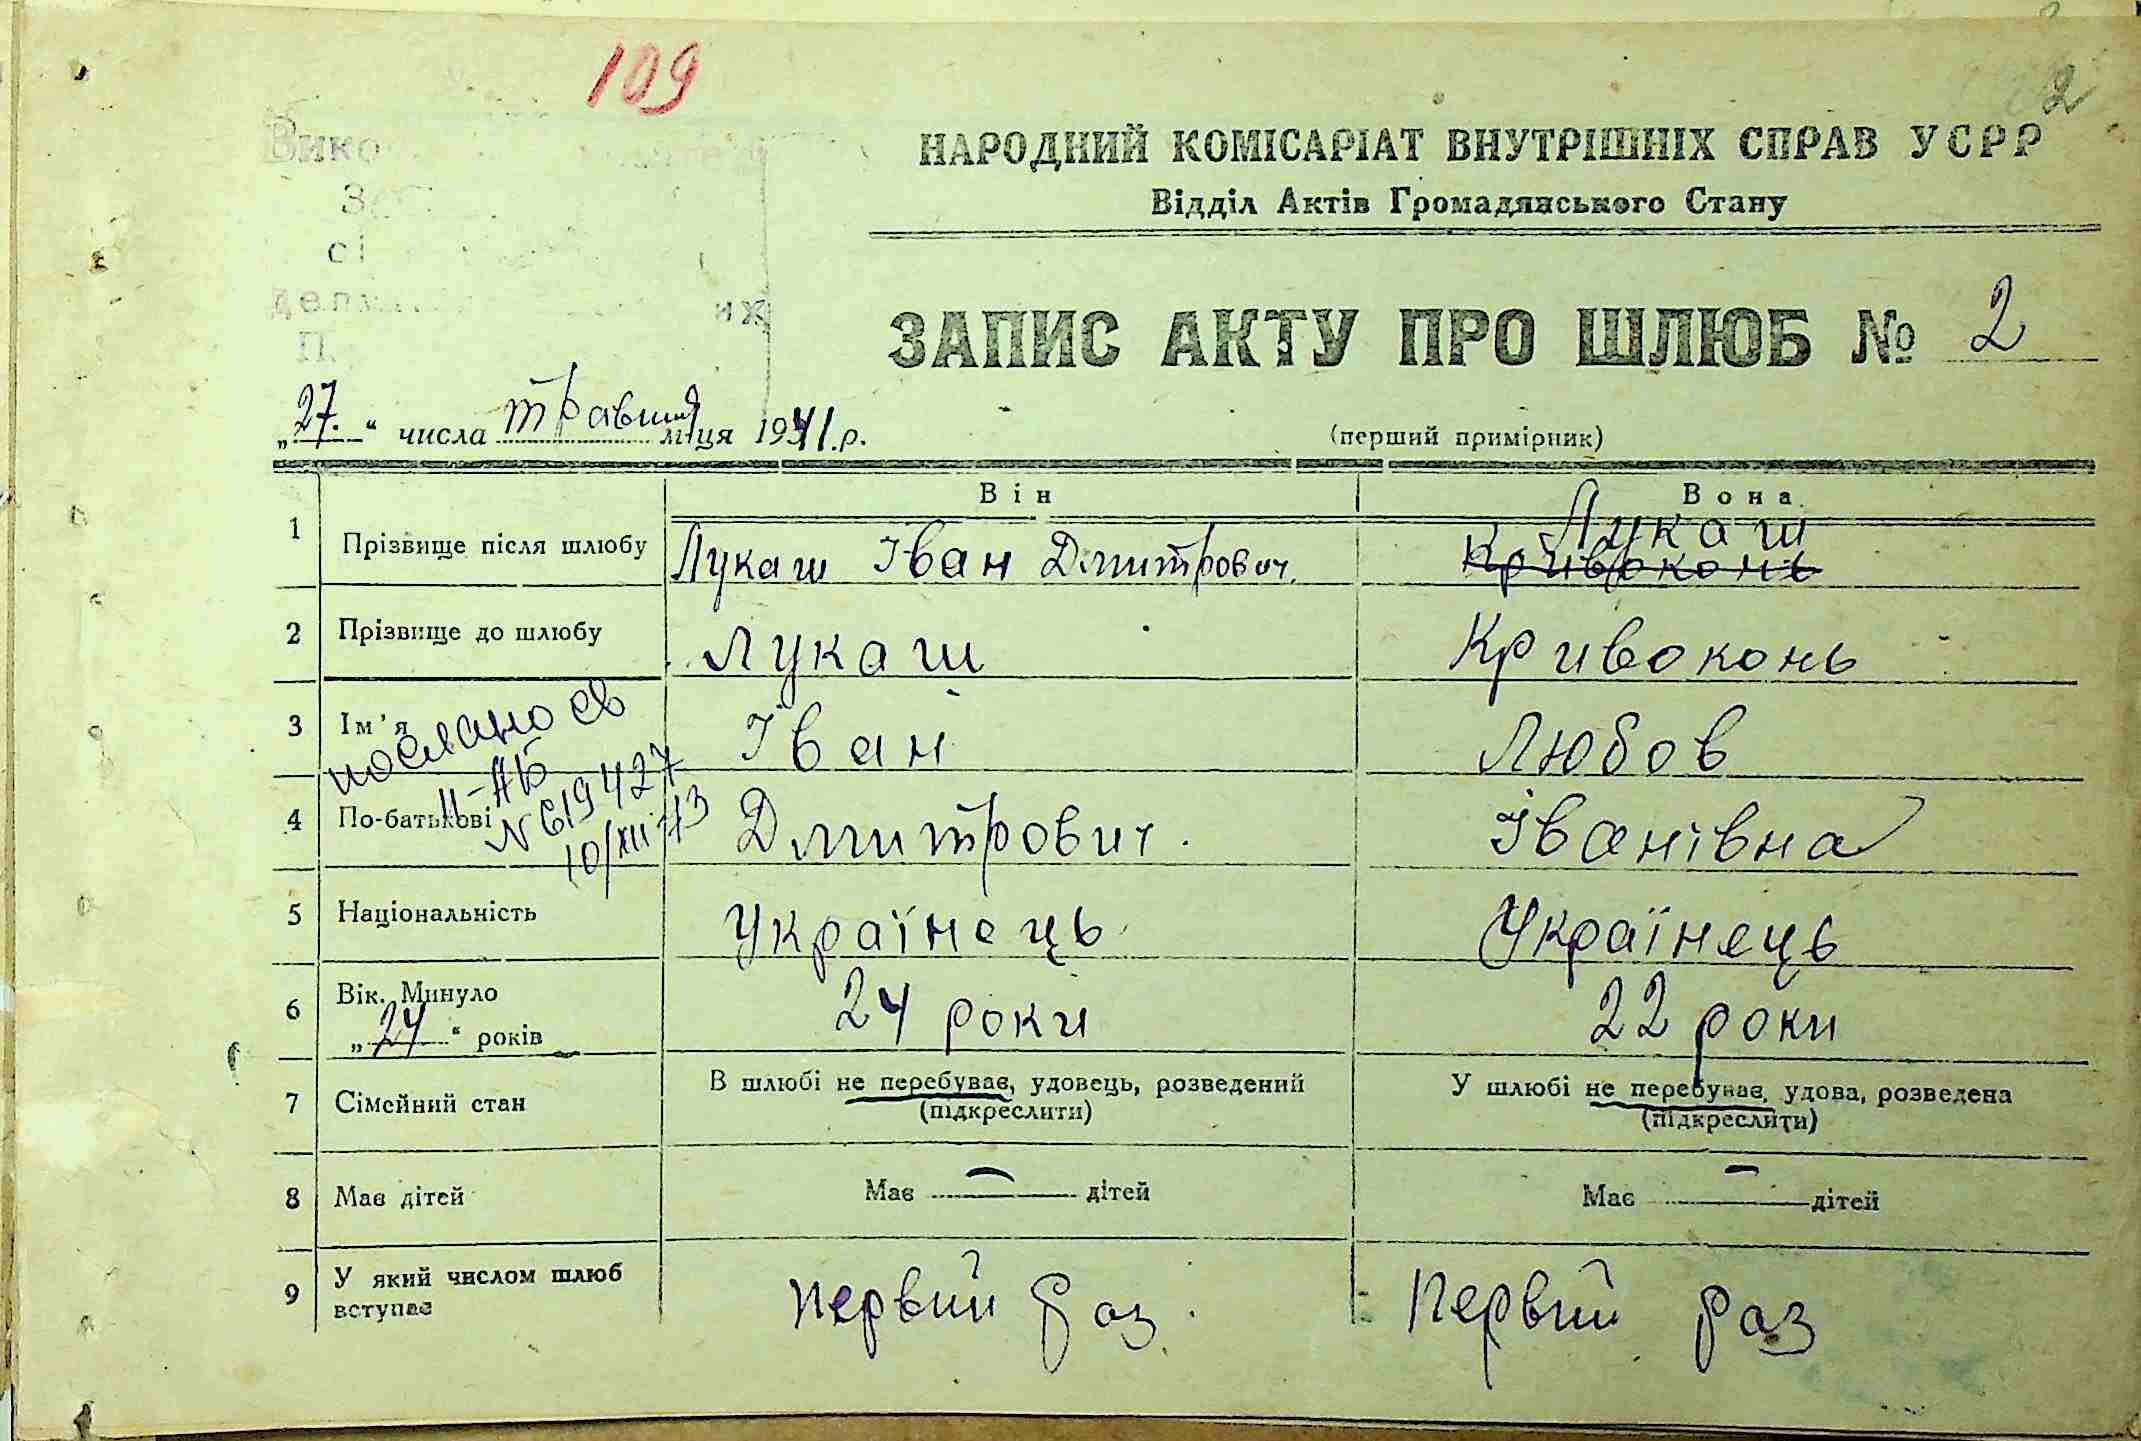 109
2
НАРОДНИЙ КОМІСАРІАТ ВНУТРІШНІХ СПРАВ УСРР
Відділ Актів Громадянського Стану
ЗАПИС АКТУ ПРО ШЛЮБ № 2
„27.“ числа травня м-ця 1941.р.
(перший примірник)
Він Вона
1 Прізвище після шлюбу Лукаш Іван Дмитрович. Лукаш
Кривоконь
2 Прізвище до шлюбу Лукаш Кривоконь
3 Ім'я Іван Любов
послано св
II-АБ
N 619427
10/XII 73
4 По-батькові Дмитрович. Іванівна
5 Національність Українець Українець
6 Вік. Минуло
„24“ років 24 роки 22 роки
7 Сімейний стан В шлюбі не перебуває, удовець, розведений У шлюбі не перебуває, удова, розведена
(підкреслити) (підкреслити)
8 Має дітей Має — дітей Має — дітей
9 У який числом шлюб
вступає Первий раз. Первий раз